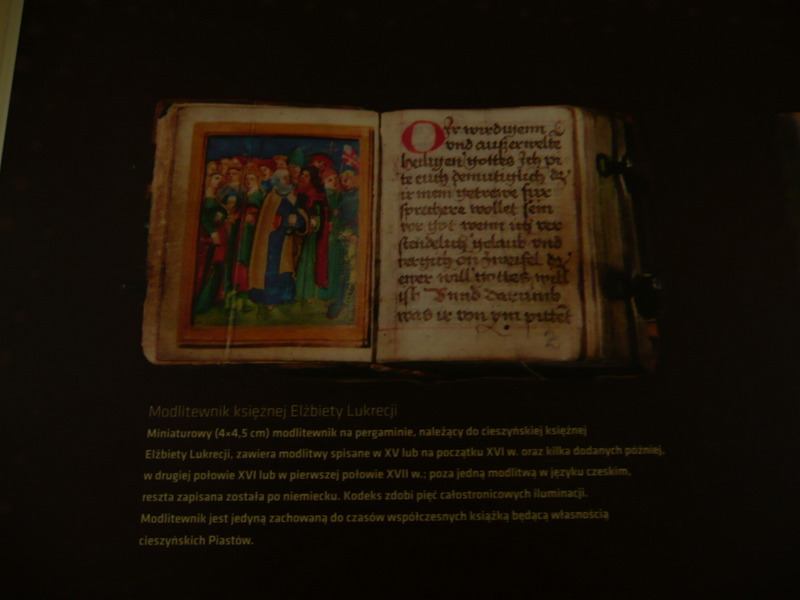 Or wirdigenn
vnd außerwelte
heiligen gottes Ich pi
te euch demutiglich das
ir mein getrewe fur
sprechere wollet sein
vor got wenn ich ver
stendelich gelaub vnd
vergich on zweifel das
ewer will gottes will
ist Vnnd darumb
was ir von ym pittet
2
Modlitewnik księżnej Elżbiety Lukrecji
Miniaturowy (4×4,5 cm) modlitewnik na pergaminie, należący do cieszyńskiej księżnej
Elżbiety Lukrecji, zawiera modlitwy spisane w XV lub na początku XVI w. oraz kilka dodanych później,
w drugiej połowie XVI lub w pierwszej połowie XVII w.; poza jedną modlitwą w języku czeskim,
reszta zapisana została po niemiecku. Kodeks zdobi pięć całostronicowych iluminacji.
Modlitewnik jest jedyną zachowaną do czasów współczesnych książką będącą własnością
cieszyńskich Piastów.